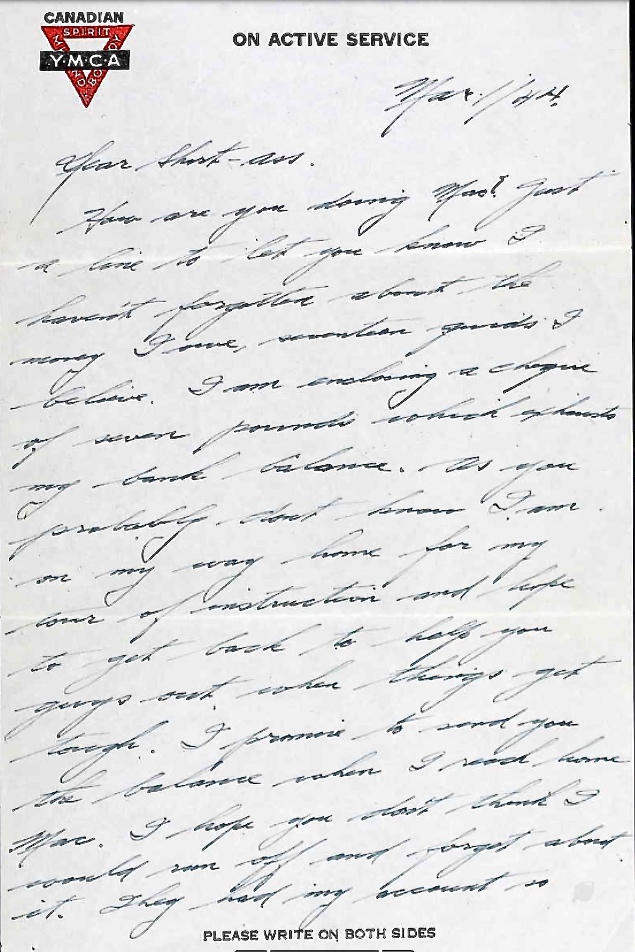 CANADIAN
SPIRIT
Y·M·C·A
MIND BODY
ON ACTIVE SERVICE
Mar. 1/44.
Dear Short-ass.
How are you doing Mac? Just
a line to let you know I
haven't forgotten about the
money I owe, seventeen quids I
believe. I am enclosing a cheque
of seven pounds which exhausts
my bank balance. As you
probably don't know I am
on my way home for my
tour of instruction and hope
to get back to help you
guys out when things get
tough. I promise to send you
the balance when I reach home
Mac. I hope you don't think I
would run off and forget about
it. They had my account so
PLEASE WRITE ON BOTH SIDES